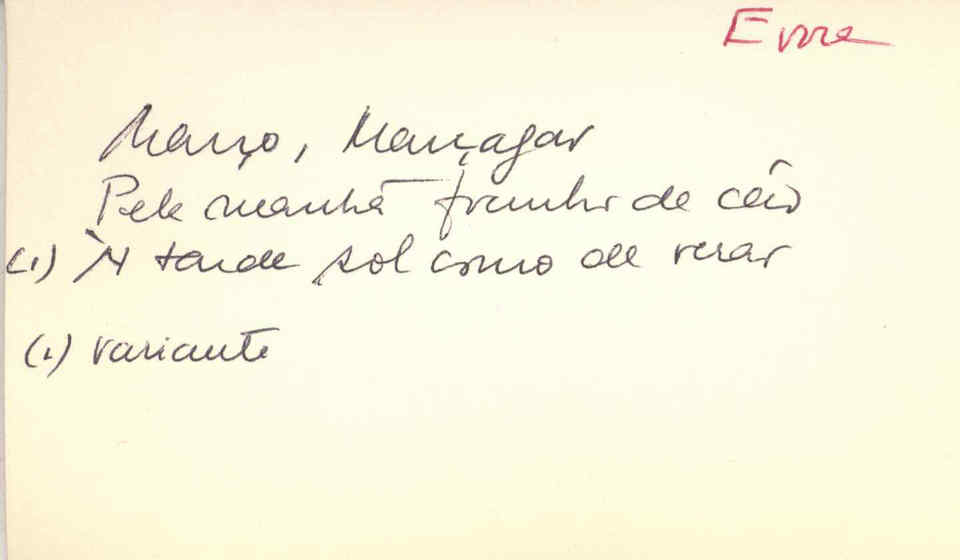 Março, Marçagão
Pela manhã focinho de cão
(1) À tarde sol como de verão
(1) variante